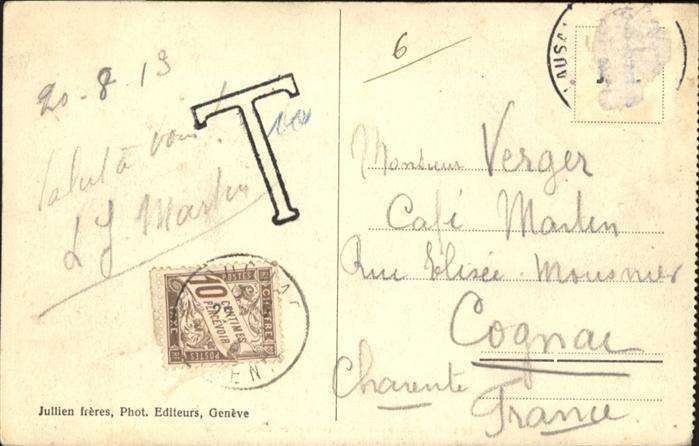 20-8-13
Salut à vous!
L J. Martin
T
10
CENTIMES
À PERCEVOIR
POSTES
Jullien frères, Phot. Editeurs, Genève
6
LAUS
Monsieur Verger
Café Martin
Rue Elisée Mousnier
Cognac
Charente
France